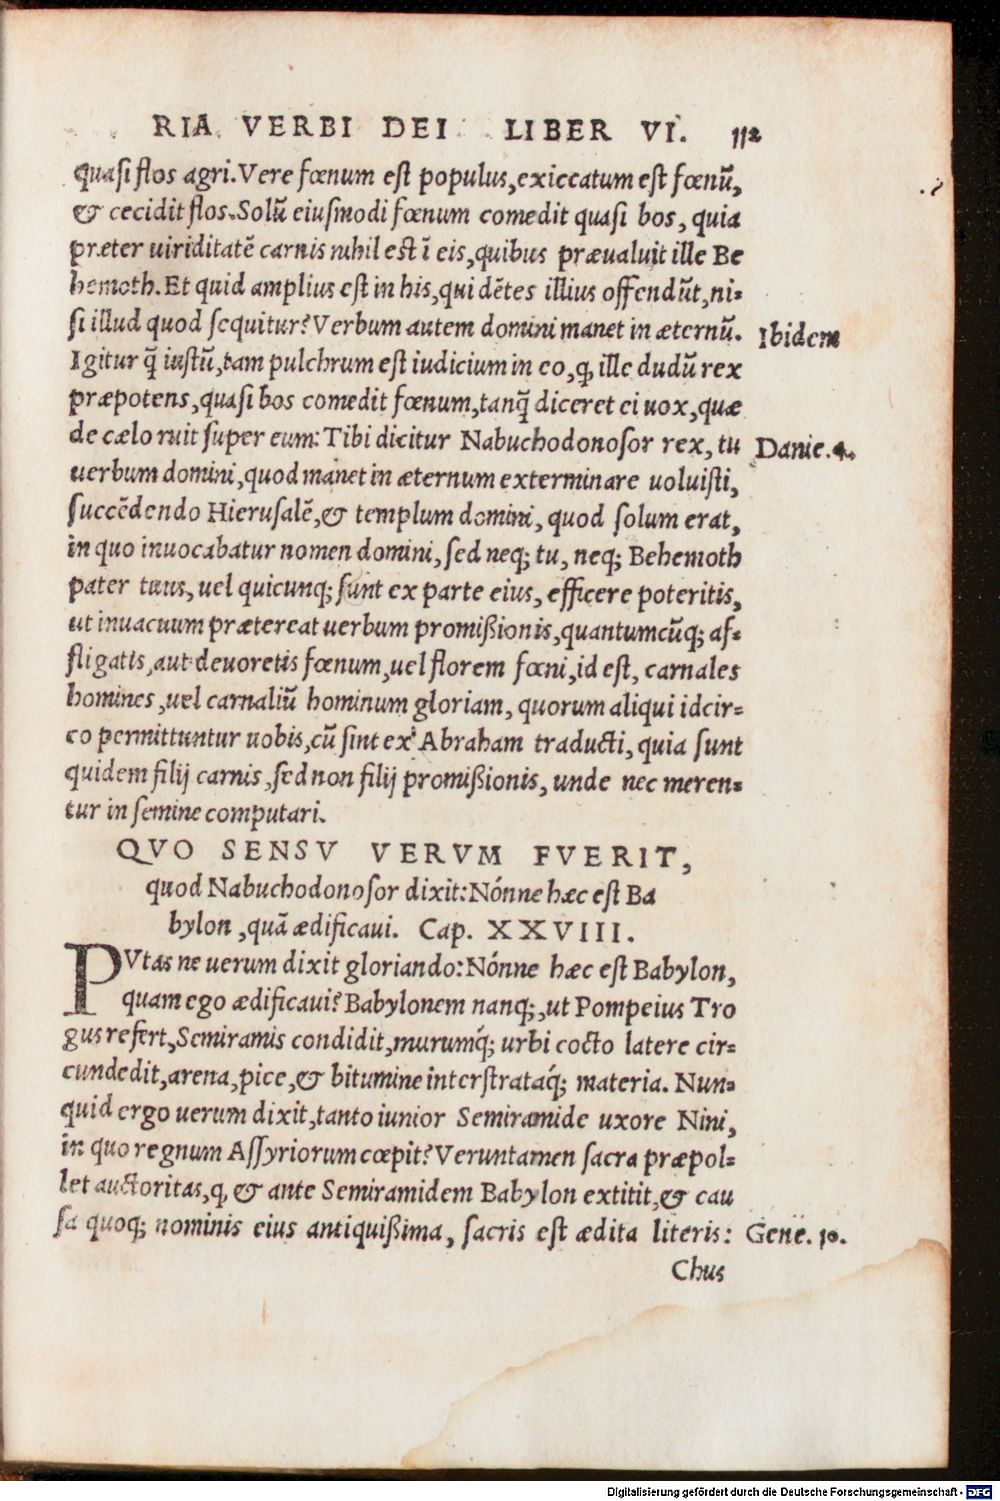 RIA VERBI DEI LIBER VI. 112
quasi flos agri. Vere fœnum est populus, exiccatum est fœnũ,
& cecidit flos. Solũ eiusmodi fœnum comedit quasi bos, quia
præter uiriditatẽ carnis nihil est ĩ eis, quibus præualuit ille Be
hemoth. Et quid amplius est in his, qui dẽtes illius offendũt, ni-
si illud quod sequitur? Verbum autem domini manet in æternũ.
Ibidem
Igitur q̃ iustũ, tam pulchrum est iudicium in eo, ꝙ ille dudũ rex
præpotens, quasi bos comedit fœnum, tanq̃ diceret ei uox, quæ
de cælo ruit super eum: Tibi dicitur Nabuchodonosor rex, tu
Danie. 4.
uerbum domini, quod manet in æternum exterminare uoluisti,
succẽdendo Hierusalẽ, & templum domini, quod solum erat,
in quo inuocabatur nomen domini, sed neq; tu, neq; Behemoth
pater tuus, uel quicunq; sunt ex parte eius, efficere poteritis,
ut inuacuum prætereat uerbum promißionis, quantumcũq; af-
fligatis, aut deuoretis fœnum, uel florem fœni, id est, carnales
homines, uel carnaliũ hominum gloriam, quorum aliqui idcir-
co permittuntur uobis, cũ sint ex Abraham traducti, quia sunt
quidem filij carnis, sed non filij promißionis, unde nec meren-
tur in semine computari.
QVO SENSV VERVM FVERIT,
quod Nabuchodonosor dixit: Nónne hæc est Ba
bylon, quã ædificaui. Cap. XXVIII.
PVtas ne uerum dixit gloriando: Nónne hæc est Babylon,
quam ego ædificaui? Babylonem nanq;, ut Pompeius Tro
gus refert, Semiramis condidit, murumq́; urbi cocto latere cir-
cundedit, arena, pice, & bitumine interstrataq́; materia. Nun-
quid ergo uerum dixit, tanto iunior Semiramide uxore Nini,
in quo regnum Assyriorum cœpit? Veruntamen sacra præpol-
let auctoritas, ꝙ & ante Semiramidem Babylon extitit, & cau
sa quoq; nominis eius antiquißima, sacris est ædita literis:
Gene. 10.
Chus
Digitalisierung gefördert durch die Deutsche Forschungsgemeinschaft - DFG